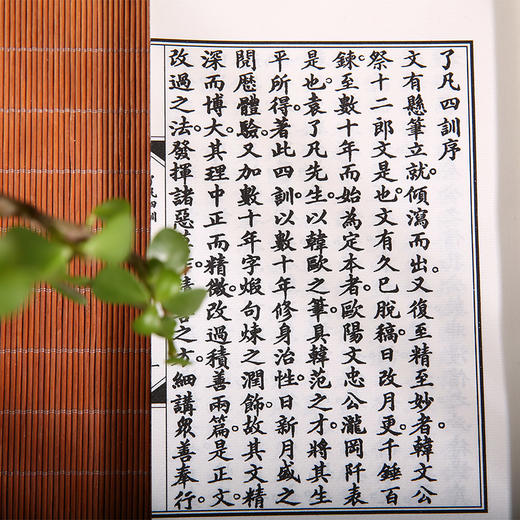 了凡四訓序
文有懸筆立就。傾瀉而出。又復至精至妙者。韓文公
祭十二郎文是也。文有久已脫稿。日改月更。千錘百
鍊。至數十年而始為定本者。歐陽文忠公瀧岡阡表
是也。袁了凡先生。以韓歐之筆。具韓范之才。將其生
平所得。著此四訓。以數十年修身治性。日新月盛之
閱歷體驗。又加數十年字煅句煉之潤飾。故其文精
深而博大。其理中正而精微。改過積善兩篇。是正文
改過之法。發揮諸惡善之方。細講眾善奉行
凡四訓